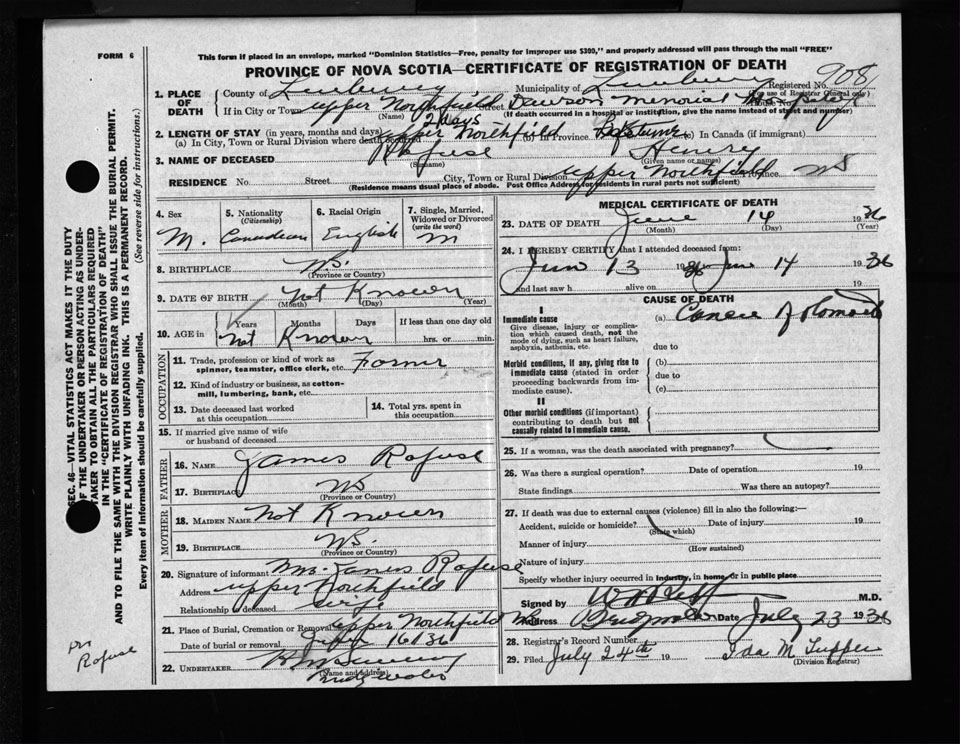 FORM 6
This form if placed in an envelope, marked "Dominion Statistics—Free, penalty for improper use $300," and properly addressed will pass through the mail "FREE"
PROVINCE OF NOVA SCOTIA—CERTIFICATE OF REGISTRATION OF DEATH
908
1. PLACE OF DEATH
County of Lunenburg
Municipality of Lunenburg
Registered No.
(For use of Registrar General only)
If in City or Town Upper Northfield Street Dawson Memorial Hospital House No.
(Name) (If death occurred in a hospital or institution, give the name instead of street and number)
2. LENGTH OF STAY (in years, months and days) 2 days
(a) In City, Town or Rural Division where death occurred Upper Northfield (b) In Province Lifetime (c) In Canada (if immigrant)
3. NAME OF DECEASED Rafuse Henry
(Surname) (Given name or names)
RESIDENCE No. Street City, Town or Rural Division Upper Northfield Province NS
(Residence means usual place of abode. Post Office Address for residents in rural parts not sufficient)
4. Sex M.
5. Nationality (Citizenship) Canadian
6. Racial Origin English
7. Single, Married, Widowed or Divorced (write the word) M
8. BIRTHPLACE NS.
(Province or Country)
9. DATE OF BIRTH Not Known
(Month) (Day) (Year)
10. AGE in Years Months Days If less than one day old
Not Known hrs. or min.
OCCUPATION
11. Trade, profession or kind of work as spinner, teamster, office clerk, etc. Farmer
12. Kind of industry or business, as cotton-mill, lumbering, bank, etc.
13. Date deceased last worked at this occupation
14. Total yrs. spent in this occupation
15. If married give name of wife or husband of deceased
FATHER
16. NAME James Rafuse
17. BIRTHPLACE NS
(Province or Country)
MOTHER
18. MAIDEN NAME Not Known
19. BIRTHPLACE NS.
(Province or Country)
20. Signature of informant Mrs. James Rafuse
Address Upper Northfield
Relationship to deceased wife
21. Place of Burial, Cremation or Removal Upper Northfield
Date of burial or removal 16/36
22. UNDERTAKER
(Name and address)
Bridgewater
MEDICAL CERTIFICATE OF DEATH
23. DATE OF DEATH June 14 1936
(Month) (Day) (Year)
24. I HEREBY CERTIFY that I attended deceased from:
June 13 1936 to June 14 1936
and last saw h alive on 19
CAUSE OF DEATH
I
Immediate cause
Give disease, injury or complication which caused death, not the mode of dying, such as heart failure, asphyxia, asthenia, etc.
(a) Cancer of stomach
due to
Morbid conditions, if any, giving rise to immediate cause (stated in order proceeding backwards from immediate cause).
(b)
due to
(c)
II
Other morbid conditions (if important) contributing to death but not causally related to immediate cause.
25. If a woman, was the death associated with pregnancy?
26. Was there a surgical operation? Date of operation 19
State findings Was there an autopsy?
27. If death was due to external causes (violence) fill in also the following:—
Accident, suicide or homicide? Date of injury 19
(State which)
Manner of injury
(How sustained)
Nature of injury
Specify whether injury occurred in industry, in home, or in public place
Signed by M.D.
Address Date July 23 1936
28. Registrar's Record Number
29. Filed July 24th 19 Ida M Tupper
(Division Registrar)
SEC. 46—VITAL STATISTICS ACT MAKES IT THE DUTY
OF THE UNDERTAKER OR PERSON ACTING AS UNDER-
TAKER TO OBTAIN ALL THE PARTICULARS REQUIRED
IN THE "CERTIFICATE OF REGISTRATION OF DEATH"
AND TO FILE THE SAME WITH THE DIVISION REGISTRAR WHO SHALL ISSUE THE BURIAL PERMIT.
WRITE PLAINLY WITH UNFADING INK. THIS IS A PERMANENT RECORD.
Every item of information should be carefully supplied. (See reverse side for instructions.)
Rafuse